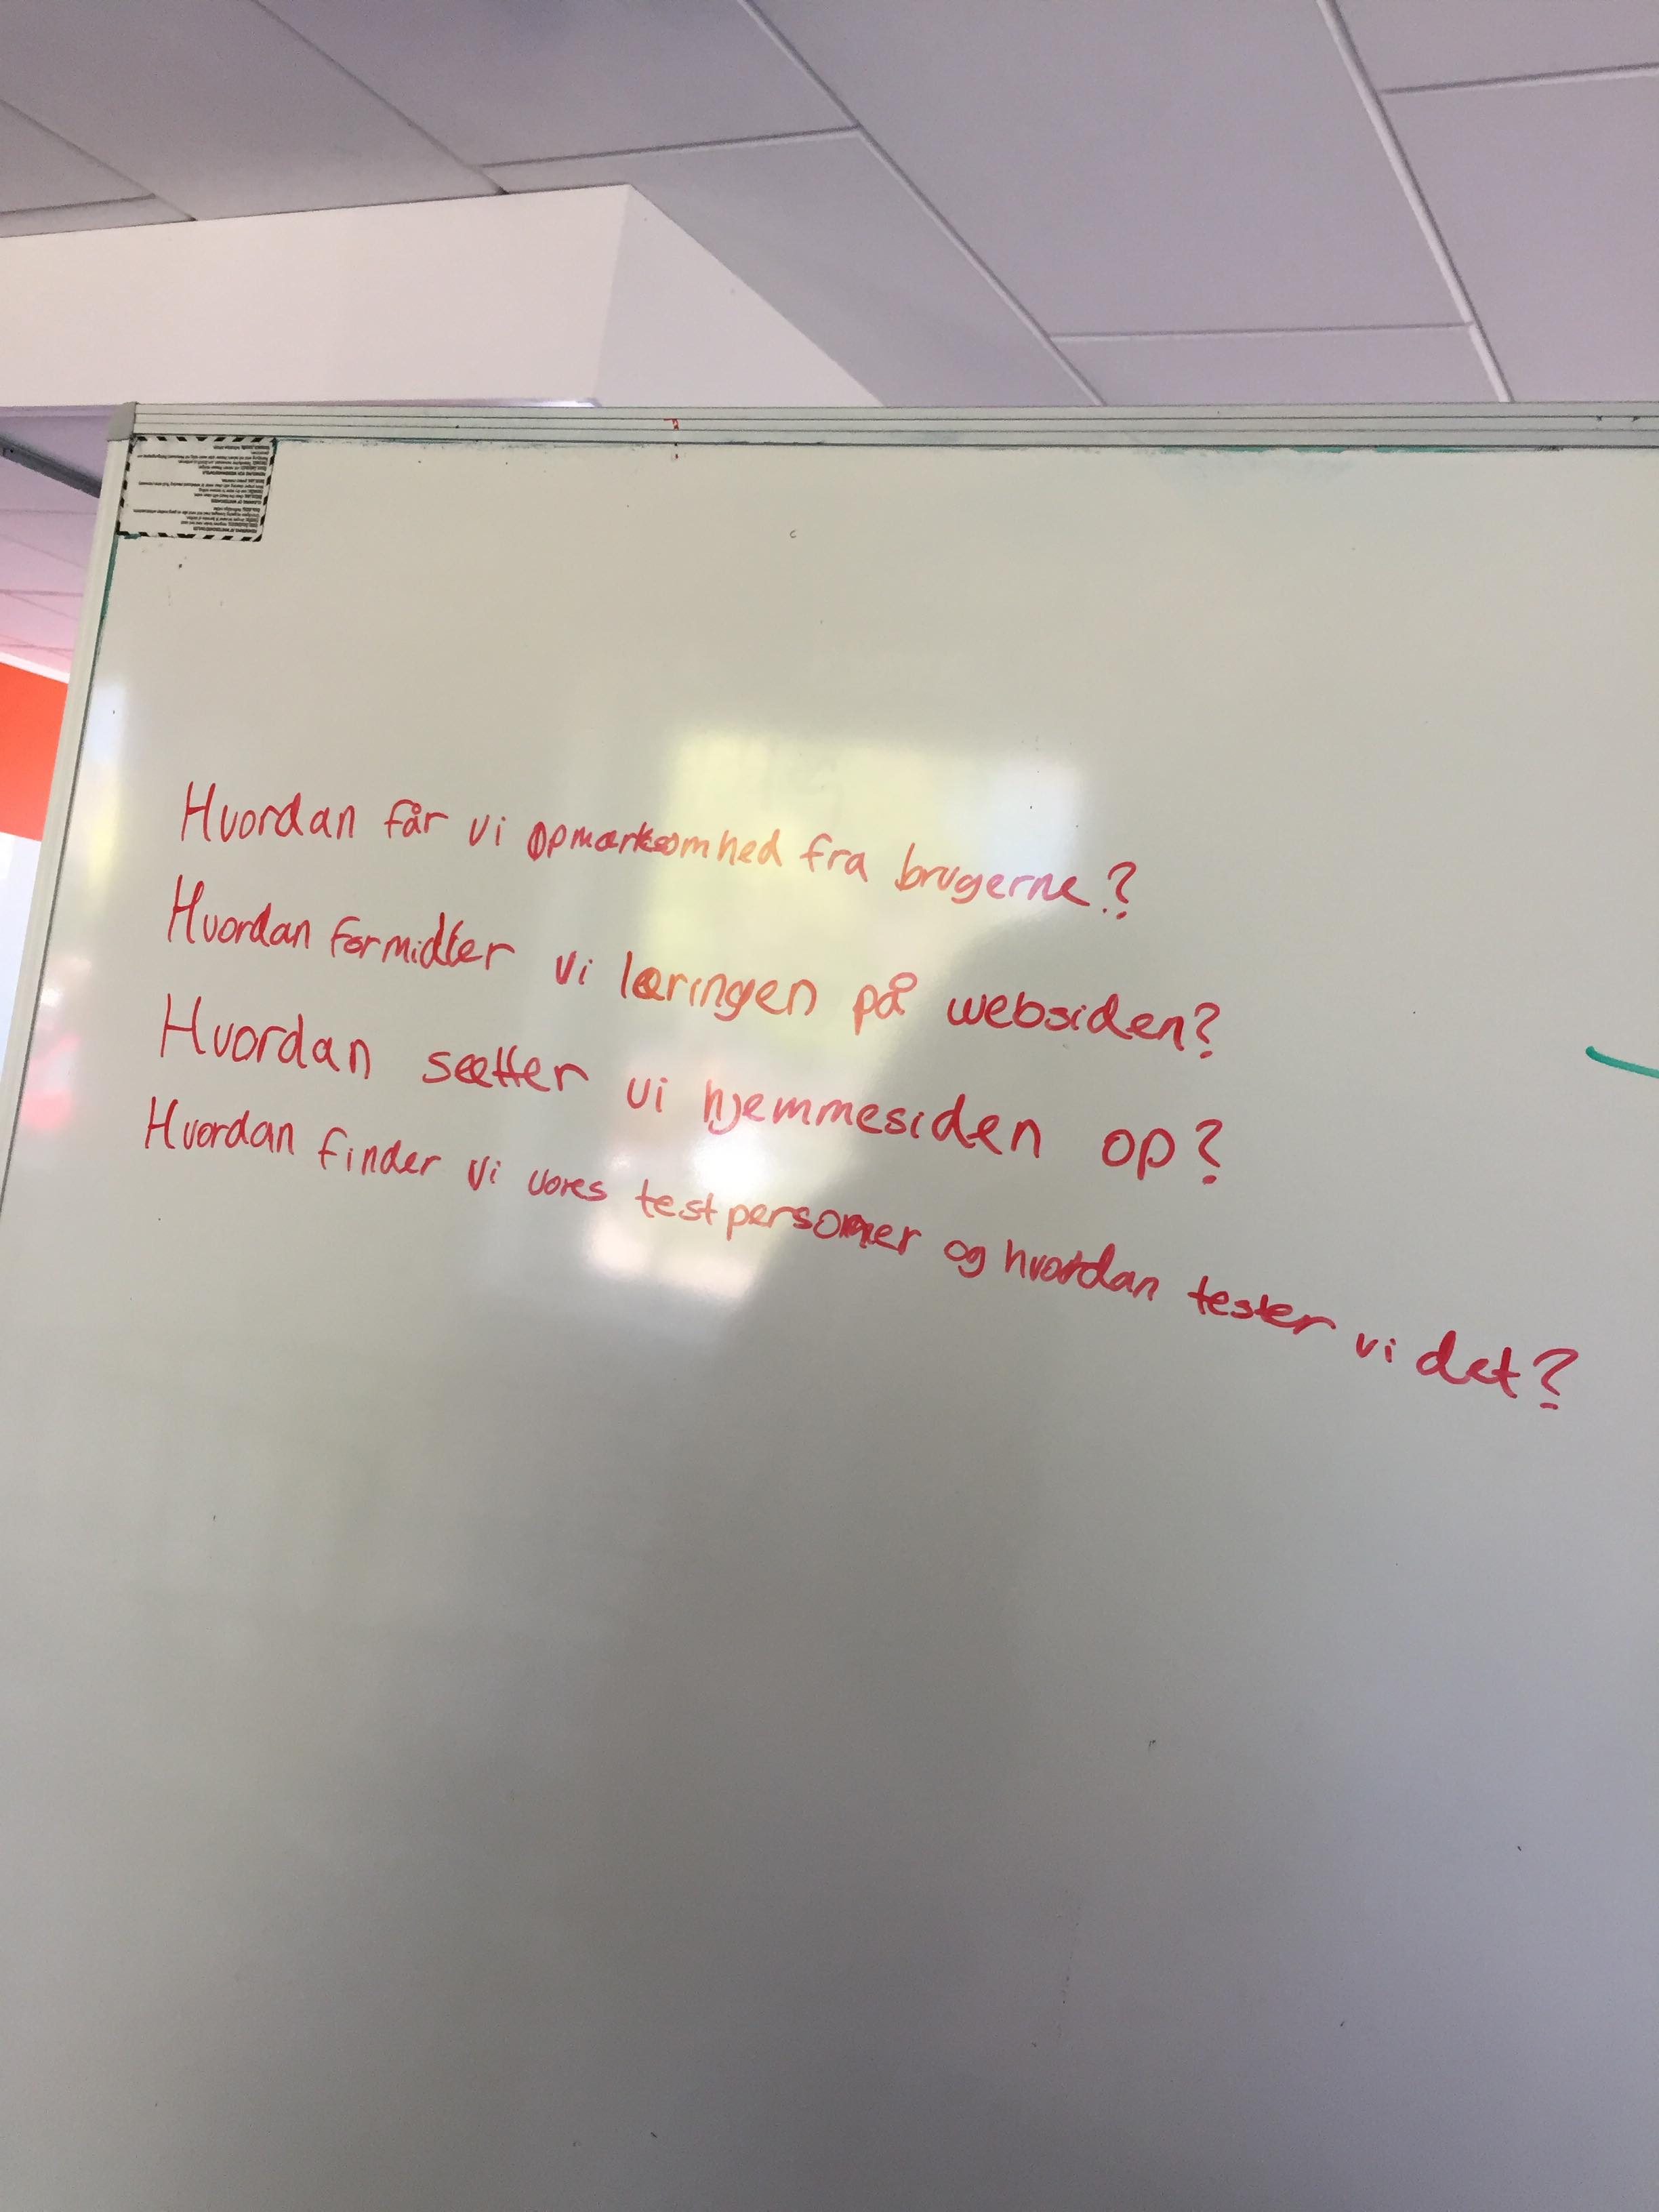 Hvordan får vi opmærksomhed fra brugerne?
Hvordan formidler vi læringen på websiden?
Hvordan sætter vi hjemmesiden op?
Hvordan finder vi vores testpersoner og hvordan tester vi det?